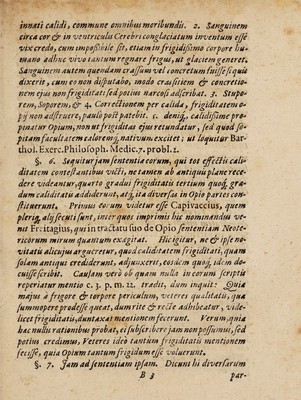 innati calidi, commune omnibus moribundis. 2. Sanguinem
circa cor & in ventriculis Cerebri conglaciatum inventum esse
vix credo, cum impossibile sit, etiam in frigidissimo corpore hu-
mano adhuc vivo tantum regnare frigus, ut glaciem generet.
Sanguinem autem quendam crassum vel concretum fuisse si quis
dixerit, cum eo non disputabo, modo crassitiem & concretio-
nem ejus non frigiditati sed potius narcosi adscribat. 3. Stupo-
rem, Soporem, & 4. Correctionem per calida, frigiditatem o-
pij non adstruere, paulo post patebit. c. deniq, calidissime pro-
pinatur Opium, non ut frigiditas ejus retundatur, sed quod so-
pitam facultatem caloremq, nativum excitet: ut loquitur Bar-
thol. Exerc. Philosoph. Medic. 7. probl. 2.
§. 6. Sequitur jam sententia eorum, qui tot effectis cali-
ditatem contestantibus victi, ne tamen ab antiquis plane rece-
dere videantur, quarto gradui frigiditatis tertium quoq, gra-
dum caliditatis addiderunt, atq, ita diversa in Opio partes con-
stituerunt. Primus eorum videtur esse Capivaccius, quem
pleriq, alij secuti sunt, inter quos imprimis hic nominandus ve-
nit Freitagius, qui in tractatu suo de Opio sententiam Neote-
ricorum mirum quantum exagitat. Hic igitur, ne & ipse no-
vitatis alicujus argueretur, quod caliditatem frigiditati, quam
solam antiqui crediderunt, adjunxerit, eosdem quoq, idem do-
cuisse scribit. Causam verò ob quam nulla in eorum scriptis
reperiatur mentio c. 3. p. m. 22. tradit, dum inquit: Quia
majus à frigore & torpore periculum, veteres qualitatis, quæ
summopere prodesse queat, dum rite & recte adhibeatur, vide-
licet frigiditatis, duntaxat mentionem fecerunt. Verum, quia
hac nullis rationibus probat, ei subscribere jam non possumus, sed
potius credimus, Veteres ideo tantum frigiditatis mentionem
fecisse, quia Opium tantum frigidum esse voluerunt.
§. 7. Jam ad sententiam ipsam. Dicunt hi diversarum
B 3 par-